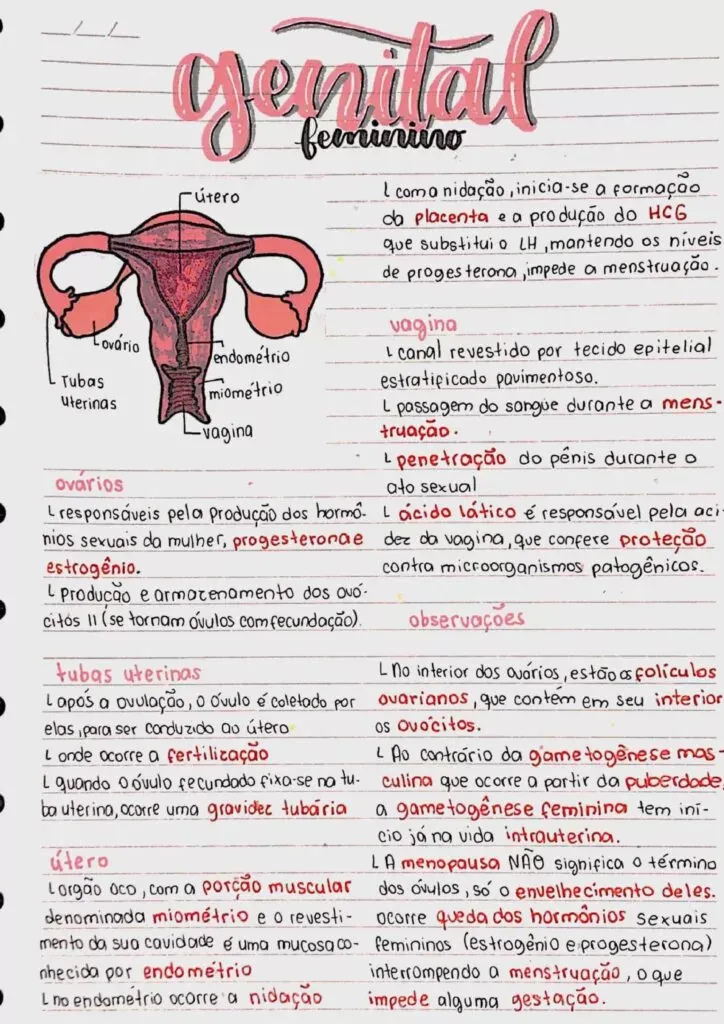 genital
feminino
útero
ovário
Tubas
uterinas
endométrio
miométrio
vagina
ovários
responsáveis pela produção dos hormô-
nios sexuais da mulher, progesterona e
estrogênio.
produção e armazenamento dos ovó-
citos II (se tornam óvulos com fecundação).
tubas uterinas
após a ovulação, o óvulo é coletado por
elas, para ser conduzido ao útero
onde ocorre a fertilização
quando o óvulo fecundado fixa-se na tu-
ba uterina, ocorre uma gravidez tubária
útero
orgão oco, com a porção muscular
denominada miométrio e o revesti-
mento da sua cavidade é uma mucosa co-
nhecida por endométrio
no endométrio ocorre a nidação
com a nidação, inicia-se a formação
da placenta e a produção do HCG
que substitui o LH, mantendo os níveis
de progesterona, impede a menstruação.
vagina
canal revestido por tecido epitelial
estratificado pavimentoso.
passagem do sangue durante a mens-
truação.
penetração do pênis durante o
ato sexual
ácido lático é responsável pela aci-
dez da vagina, que confere proteção
contra microorganismos patogênicos.
observações
No interior dos ovários, estão os folículos
ovarianos, que contém em seu interior
os ovócitos.
Ao contrário da gametogênese mas-
culina que ocorre a partir da puberdade,
a gametogênese feminina tem iní-
cio já na vida intrauterina.
A menopausa NÃO significa o término
dos óvulos, só o envelhecimento deles.
ocorre queda dos hormônios sexuais
femininos (estrogênio e progesterona)
interrompendo a menstruação, o que
impede alguma gestação.